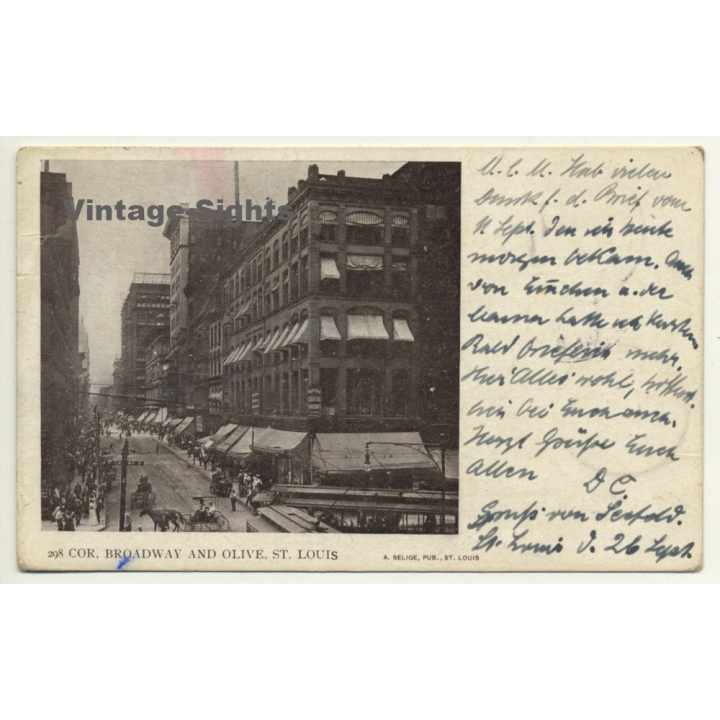 Vintage Sights
M. l. M. Hab vielen
Dank f. d. Brief vom
11 Sept. den ich heute
morgen bekam. Auch
von Emmchen u. der
hatte ich Karten
Bald mehr.
Hier Alles wohl,
bei Euch auch.
Herzl Grüße Euch
Allen D C.
Gruß von Seefeld.
St. Louis d. 26 Sept
298 COR. BROADWAY AND OLIVE, ST. LOUIS
A. SELIGE, PUB., ST. LOUIS